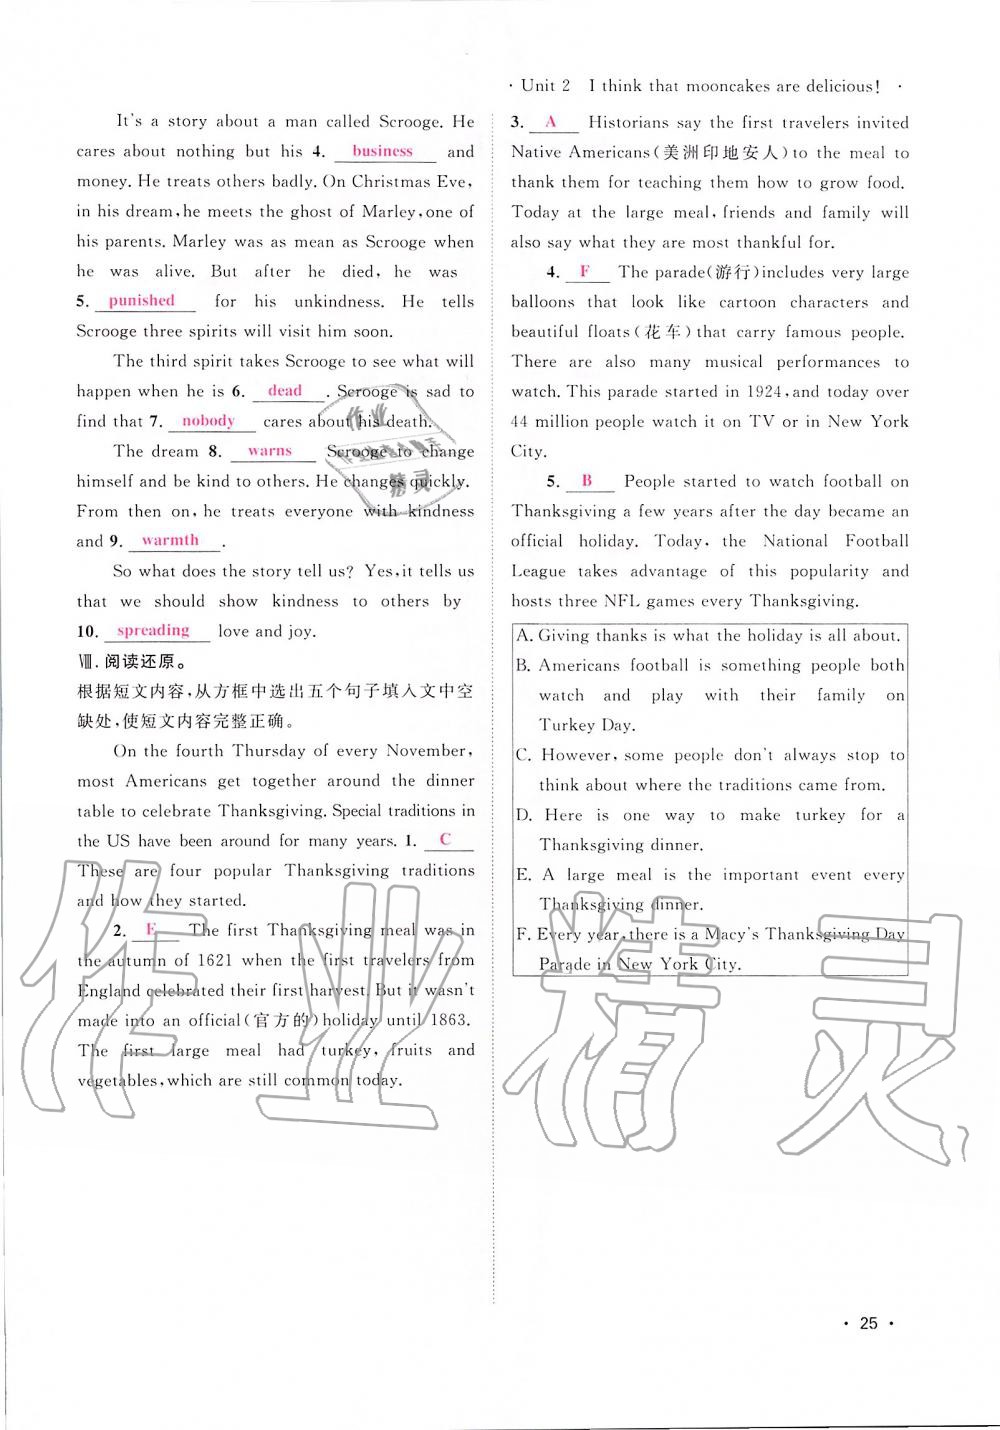 · Unit 2 I think that mooncakes are delicious! ·
It's a story about a man called Scrooge. He
cares about nothing but his 4. business and
money. He treats others badly. On Christmas Eve,
in his dream, he meets the ghost of Marley, one of
his parents. Marley was as mean as Scrooge when
he was alive. But after he died, he was
5. punished for his unkindness. He tells
Scrooge three spirits will visit him soon.
The third spirit takes Scrooge to see what will
happen when he is 6. dead . Scrooge is sad to
find that 7. nobody cares about his death.
The dream 8. warns Scrooge to change
himself and be kind to others. He changes quickly.
From then on, he treats everyone with kindness
and 9. warmth .
So what does the story tell us? Yes, it tells us
that we should show kindness to others by
10. spreading love and joy.
Ⅷ. 阅读还原。
根据短文内容,从方框中选出五个句子填入文中空
缺处,使短文内容完整正确。
On the fourth Thursday of every November,
most Americans get together around the dinner
table to celebrate Thanksgiving. Special traditions in
the US have been around for many years. 1. C
These are four popular Thanksgiving traditions
and how they started.
2. E The first Thanksgiving meal was in
the autumn of 1621 when the first travelers from
England celebrated their first harvest. But it wasn't
made into an official(官方的)holiday until 1863.
The first large meal had turkey, fruits and
vegetables, which are still common today.
3. A Historians say the first travelers invited
Native Americans(美洲印地安人)to the meal to
thank them for teaching them how to grow food.
Today at the large meal, friends and family will
also say what they are most thankful for.
4. F The parade(游行)includes very large
balloons that look like cartoon characters and
beautiful floats(花车)that carry famous people.
There are also many musical performances to
watch. This parade started in 1924, and today over
44 million people watch it on TV or in New York
City.
5. B People started to watch football on
Thanksgiving a few years after the day became an
official holiday. Today, the National Football
League takes advantage of this popularity and
hosts three NFL games every Thanksgiving.
A. Giving thanks is what the holiday is all about.
B. Americans football is something people both
watch and play with their family on
Turkey Day.
C. However, some people don't always stop to
think about where the traditions came from.
D. Here is one way to make turkey for a
Thanksgiving dinner.
E. A large meal is the important event every
Thanksgiving dinner.
F. Every year, there is a Macy's Thanksgiving Day
Parade in New York City.
作业精灵
· 25 ·